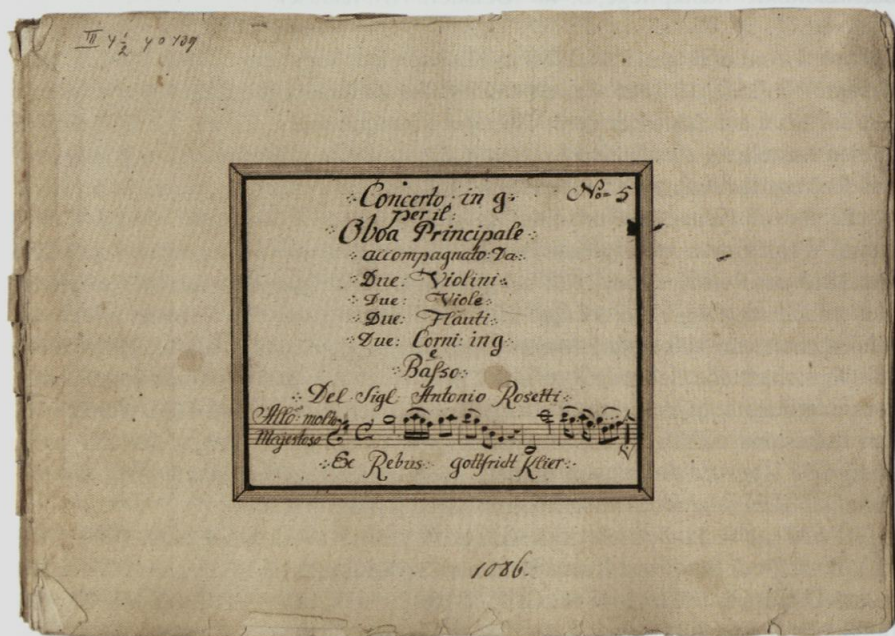 III 4 1/2 40 739
Concerto in g. No= 5
per il:
Oboa Principale
accompagnato: Da:
Due: Violini:
Due: Viole:
Due: Flauti:
Due: Corni: in g
e
Baſso:
Del Sigl: Antonio Rosetti:
Allo: molto
Majestoso
Ex Rebus: gottfridt Klier:
1086.